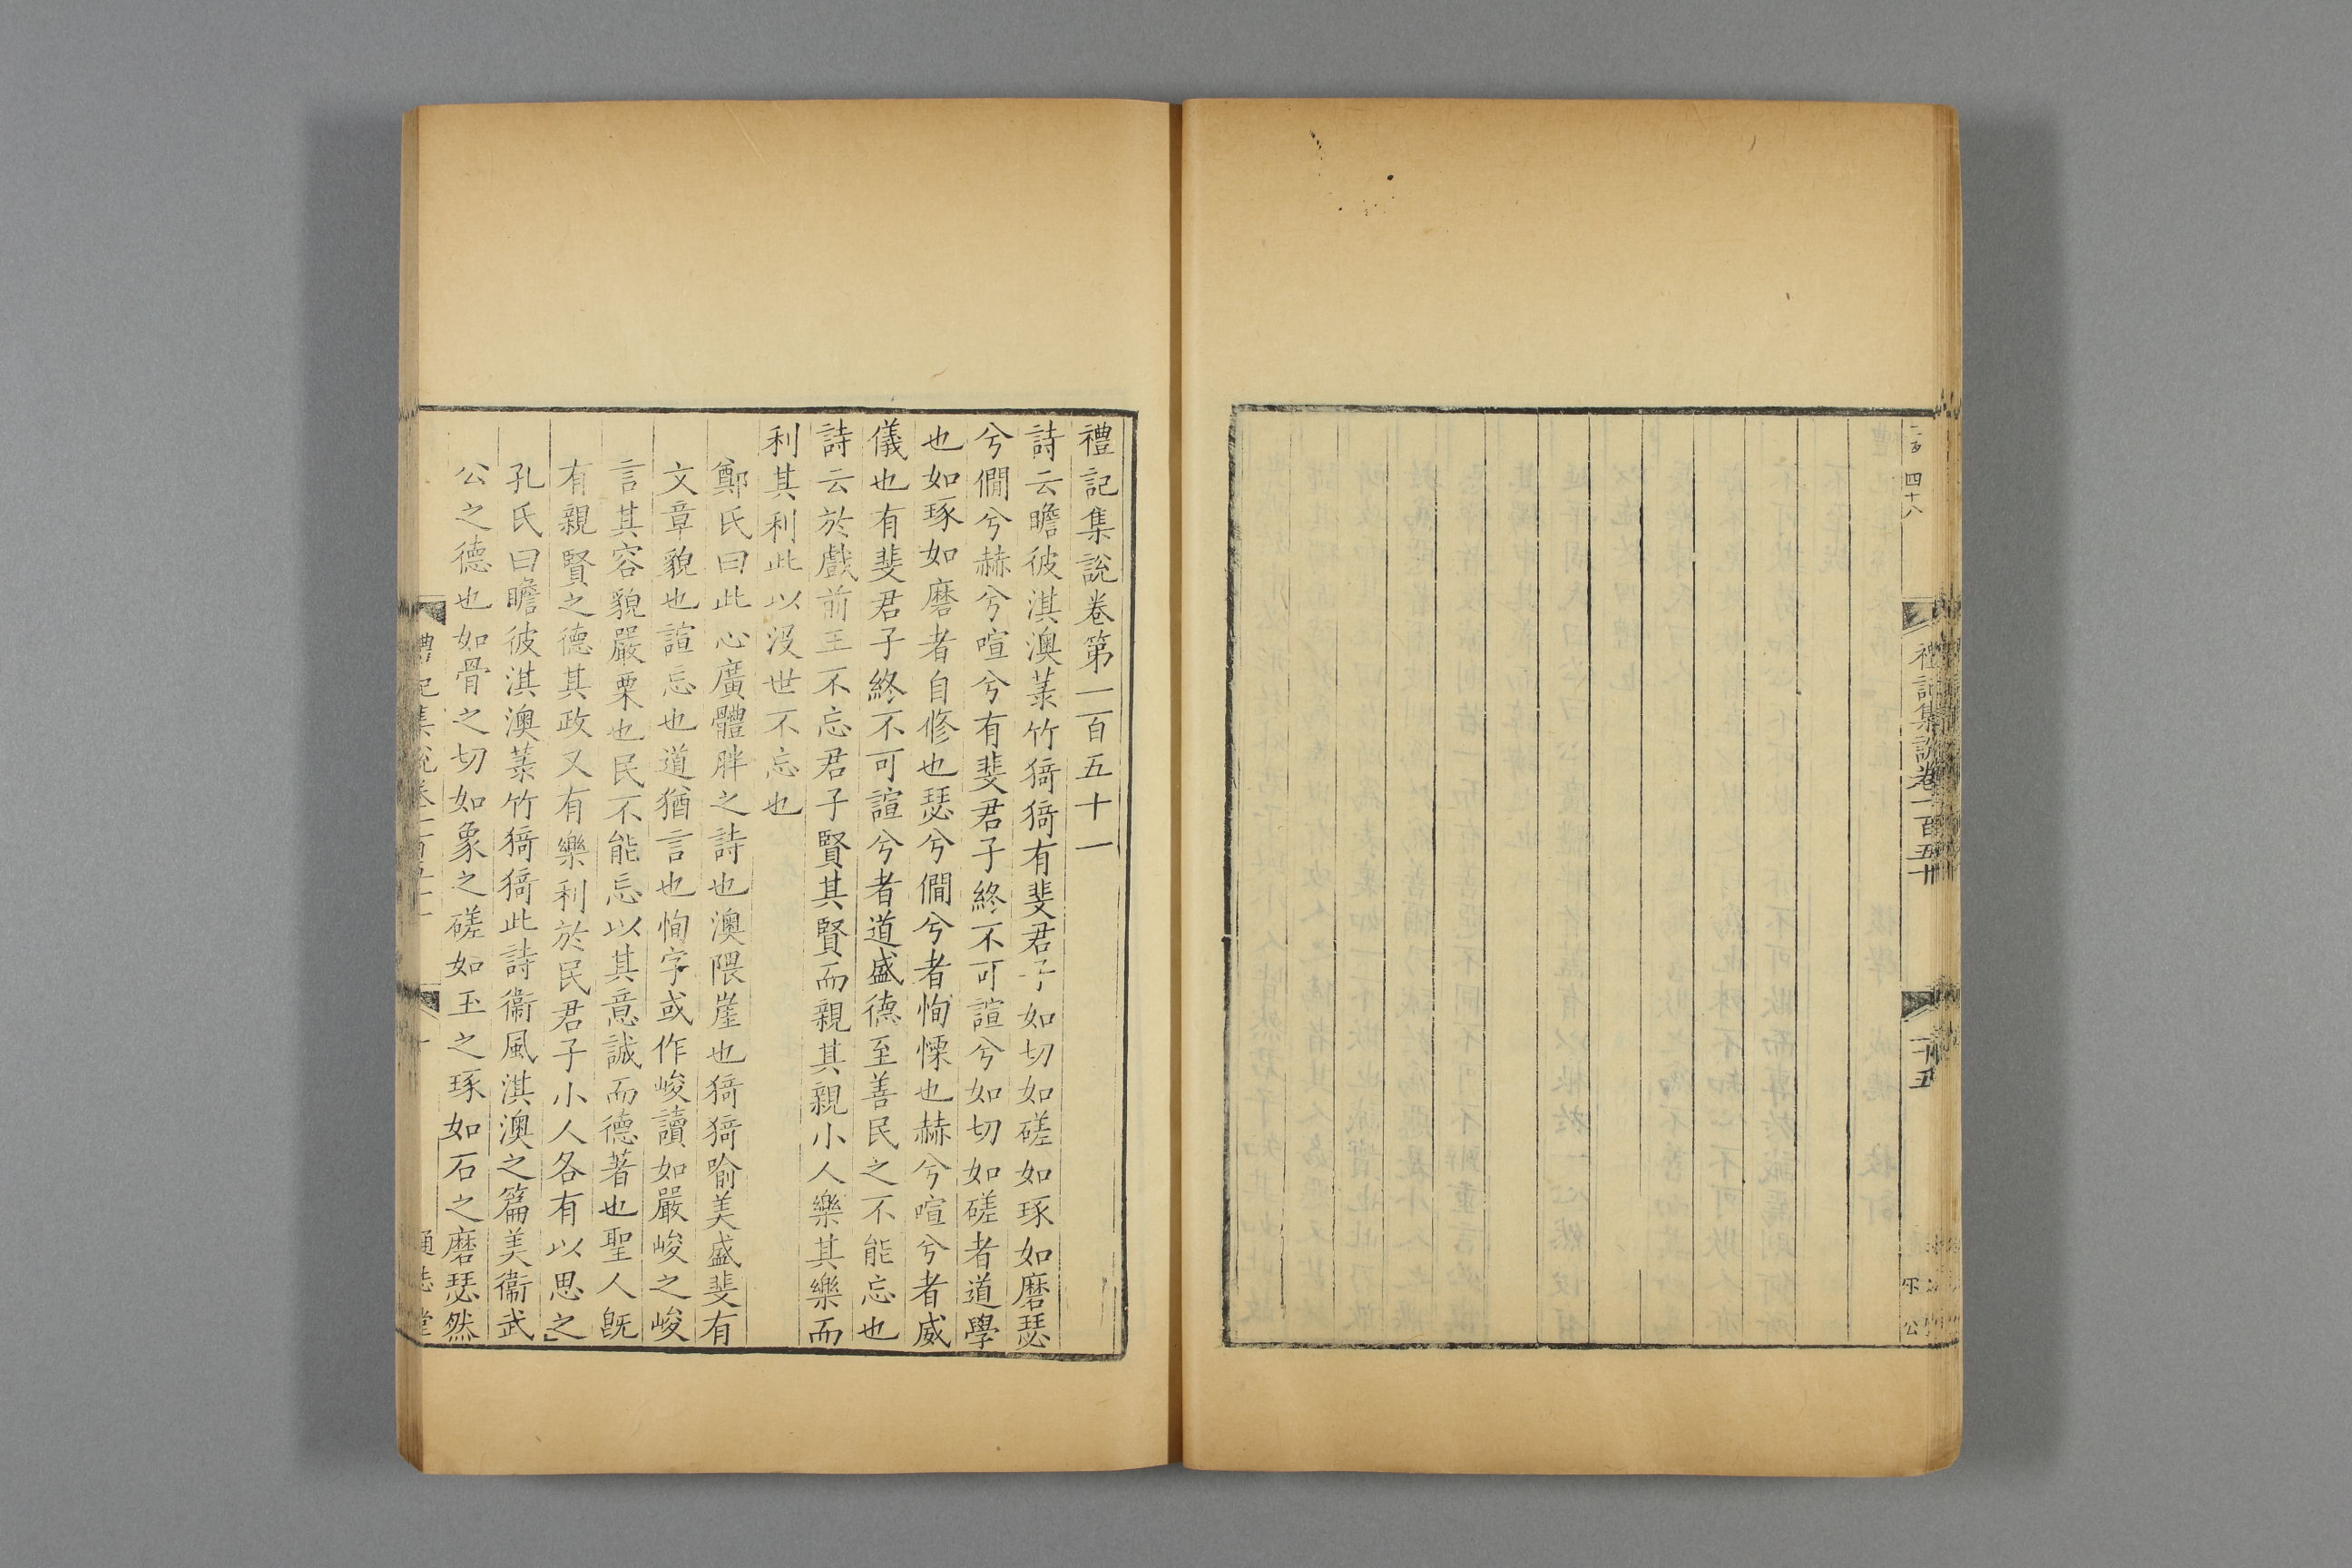 二百四十八
禮記集說卷一百五十
二十五
禮記集說卷第一百五十一
詩云瞻彼淇澳菉竹猗猗有斐君子如切如磋如琢如磨瑟
兮僩兮赫兮喧兮有斐君子終不可諠兮如切如磋者道學
也如琢如磨者自修也瑟兮僩兮者恂慄也赫兮喧兮者威
儀也有斐君子終不可諠兮者道盛德至善民之不能忘也
詩云於戲前王不忘君子賢其賢而親其親小人樂其樂而
利其利此以沒世不忘也
鄭氏曰此心廣體胖之詩也澳隈崖也猗猗喻美盛斐有
文章貌也諠忘也道猶言也恂字或作峻讀如嚴峻之峻
言其容貌嚴栗也民不能忘以其意誠而德著也聖人旣
有親賢之德其政又有樂利於民君子小人各有以思之
孔氏曰瞻彼淇澳菉竹猗猗此詩衞風淇澳之篇美衞武
公之德也如骨之切如象之磋如玉之琢如石之磨瑟然
禮記集說卷一百五十一
一
通志堂